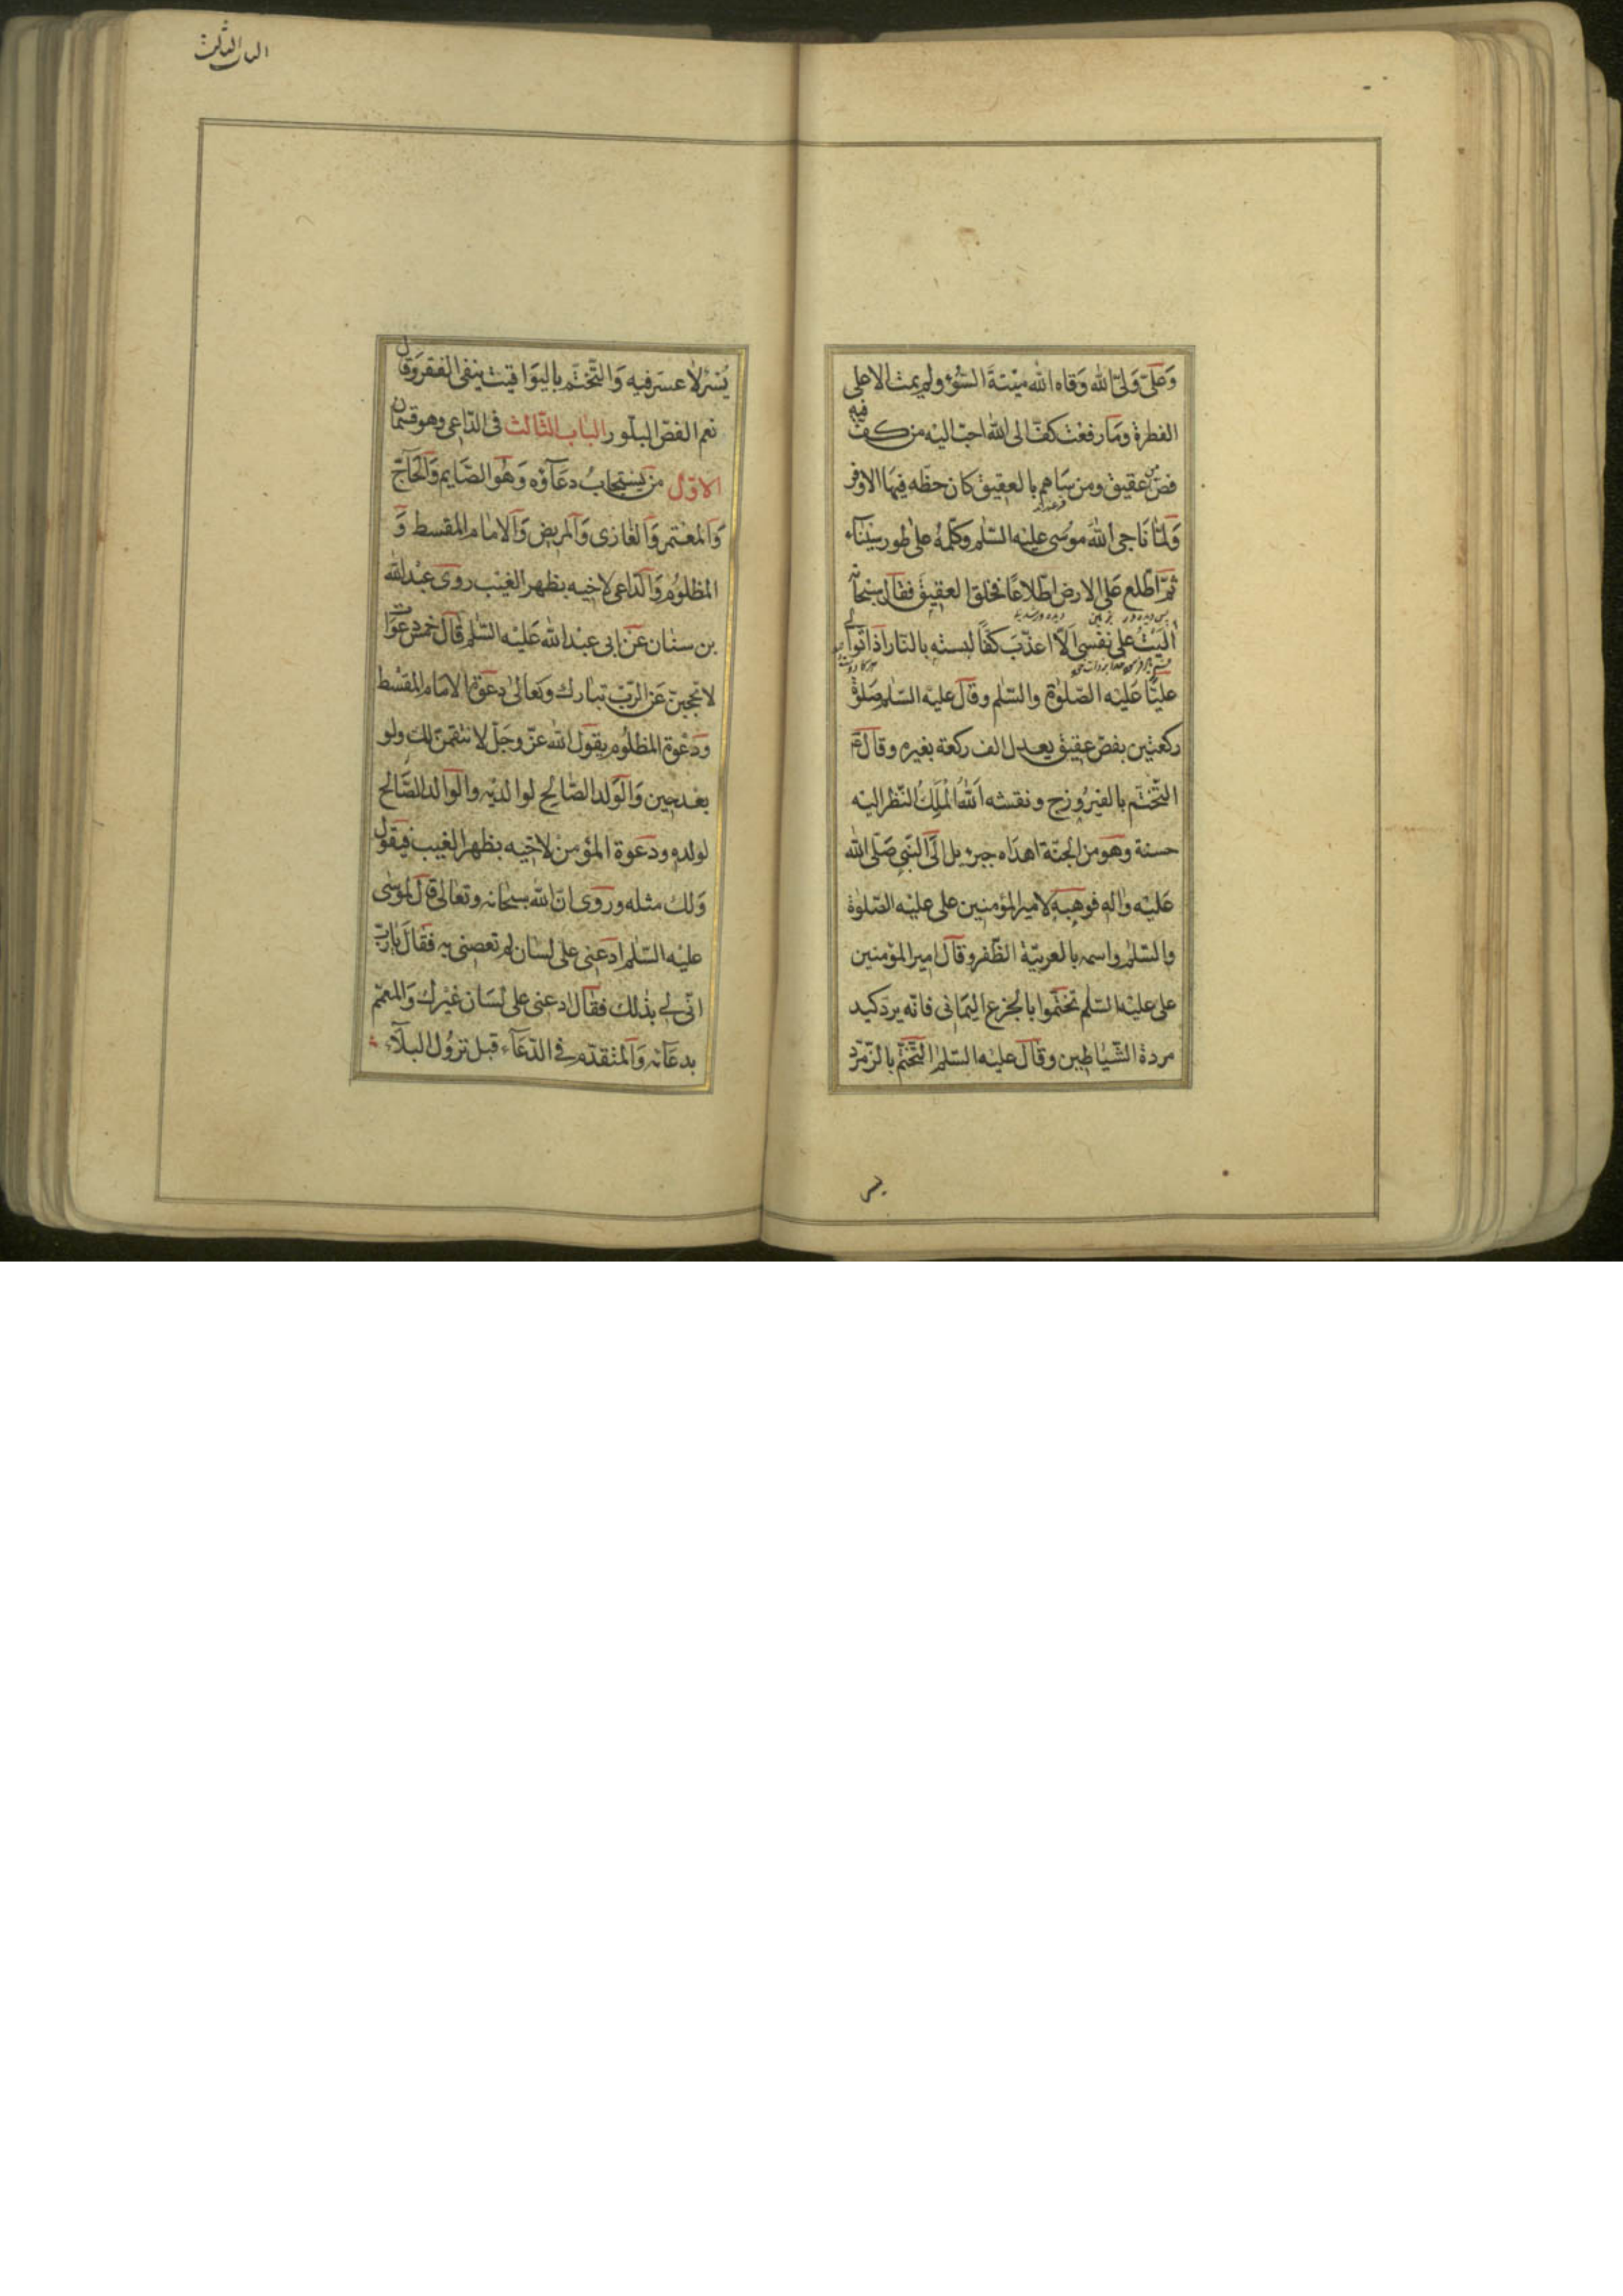 وَعَلىّ وَلىّ الله وَقاه الله ميْتةَ السُّوْءِ ولم يمت الا على
الفطرة ومَا رفعت كفّ الى الله احبّ اليْه من كفّ فيه
فصّ عقيق ومن سَاهم بالعقيق كان حظّه فيهَا الاوفر
وَلمّا ناجى اللهُ موُسى عليْه السّلم وكلّمهُ على طور سيْنَاء
ثمّ اطّلع عَلى الارض اطّلاعًا فخلق العقيقَ فقال سبْحانه
آليْتُ على نفسى اَلاّ اعذّبَ كفّاً لبسته بالنّار اذا توالى
عليًّا عَليْه الصّلوٰة والسّلم وقال عليْه السّلم صَلوة
ركعتين بفصّ عقيق يعدل الف ركعة بغيره وقال ع
التّختّم بالفيرُوزج ونقشه اَللهُ الْمَلِكُ النّظر اليْه
حسنة وهو من الجنّة اهدَاه جبرئيل الَى النّبي صَلّى الله
عَليْه واٰله فوهبه لامير المؤمنين على عليْه الصّلوٰة
والسّلم واسمه بالعربيّة الظّفر وقال امير المؤمنين
على عليْه السّلم تختّموا بالجزع اليَمانى فانّه يردّ كيد
مردة الشّيَاطين وقال عليْه السّلم التّختّم بالزّمرّد
يسر
الباب الثالث
يُسْرٌ لا عسر فيه وَالتّختّم باليوَاقيت ينفى الفقر وَقال
نعم الفصّ البلّور الباب الثّالث فى الدّاعى وهو قسمان
الاوّل من يُستجابُ دعَآؤه وَهُو الصّايم وَالحَآجّ
وَالمعْتمر وَالغَازى وَالمريض وَالامَام المقسط وَ
المظلوُم وَالدّاعى لاخيه بظهر الغيْب روى عبْد الله
بن سنان عَن ابى عبْد الله عَليْه السّلم قال خمْس دعَوَات
لا تحجبن عَن الرّبّ تبَارك وتَعالىٰ دعوَة الامَام المقسْط
ودعْوة المظلوُم يقول الله عزّ وجَلّ لانتقمنّ لك ولو
بعْد حين وَالوَلد الصّالح لوالديْه والوَالد الصَّالح
لولده ودعوة المؤمن لاخيه بظهر الغيب فيقوُل
وَلك مثله وروى انّ الله سبحانه وتعالى قال لموسى
عليْه السّلم ادعنى على لسان لم تعصنى به فقال يا ربّ
انّى لى بذٰلك فقال ادعنى على لسَان غيْرك وَالمعمّم
بدعَآئه وَالمتقدّم فى الدّعَآء قبل نزوُل البلآء